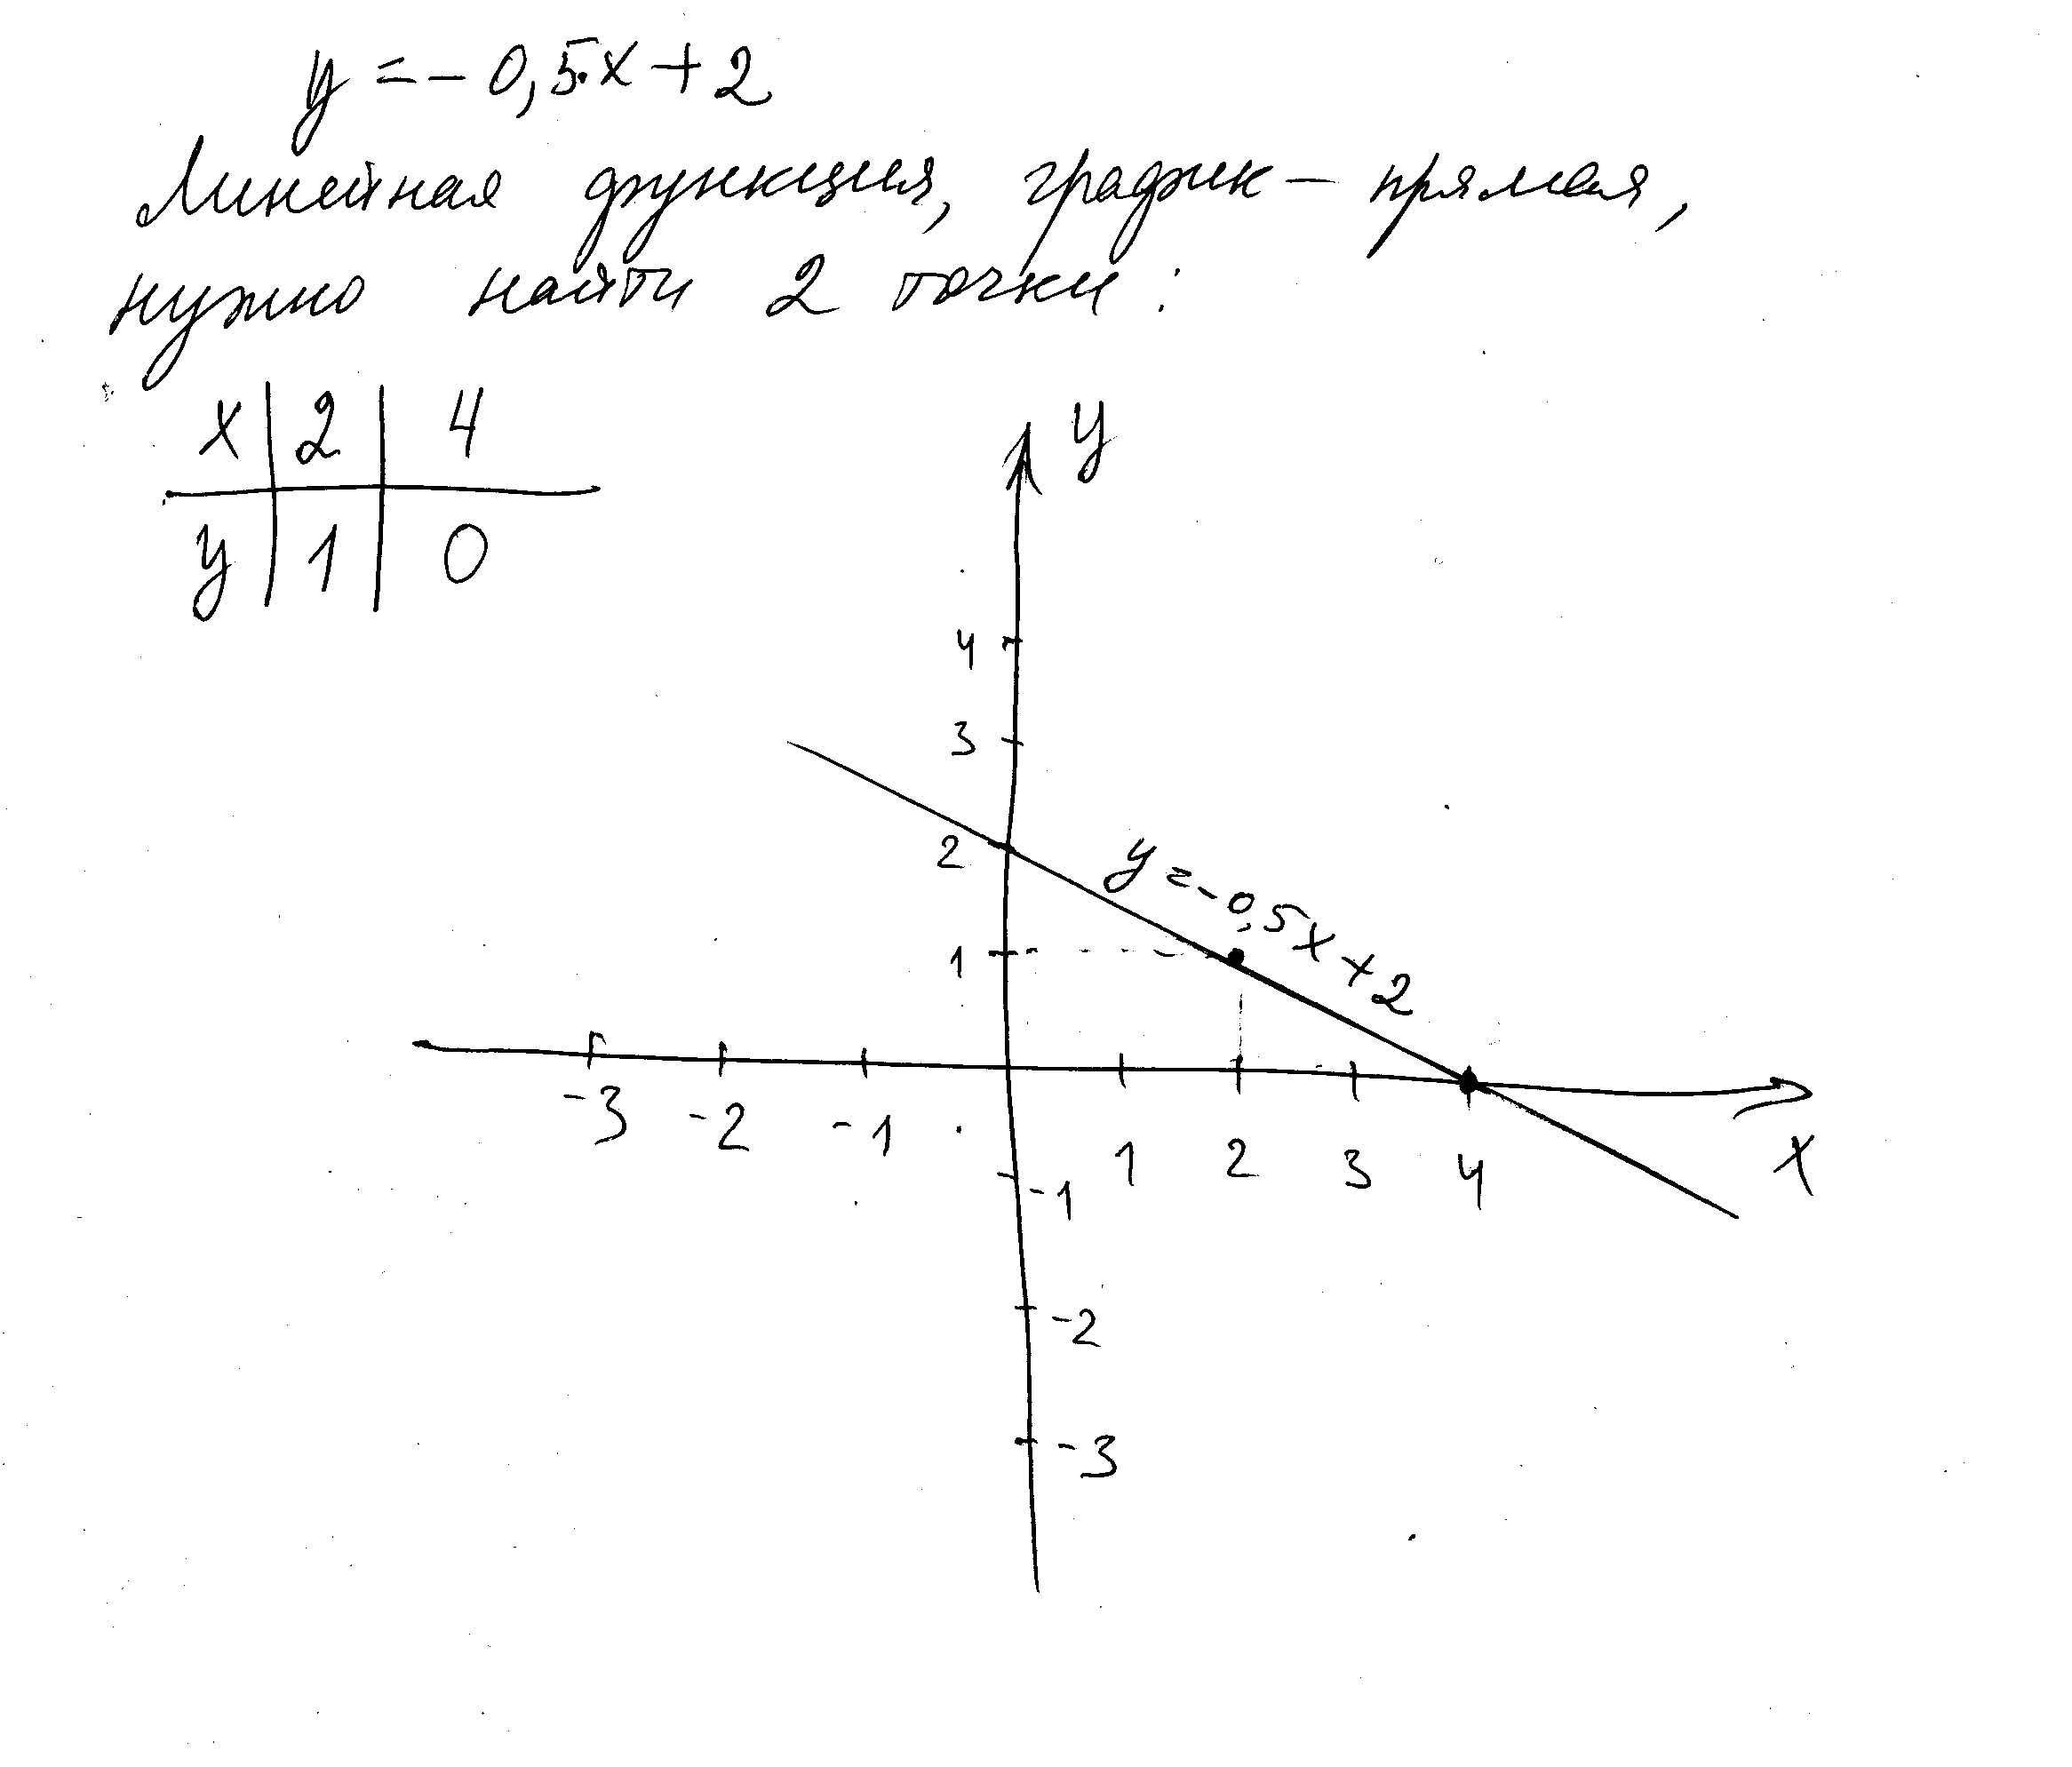 y = - 0,5·x + 2
Линейная функция, график - прямая,
нужно найти 2 точки:
x | 2 | 4
y | 1 | 0
y
4
3
2
y = -0,5x + 2
1
-3 -2 -1 1 2 3 4 x
-1
-2
-3